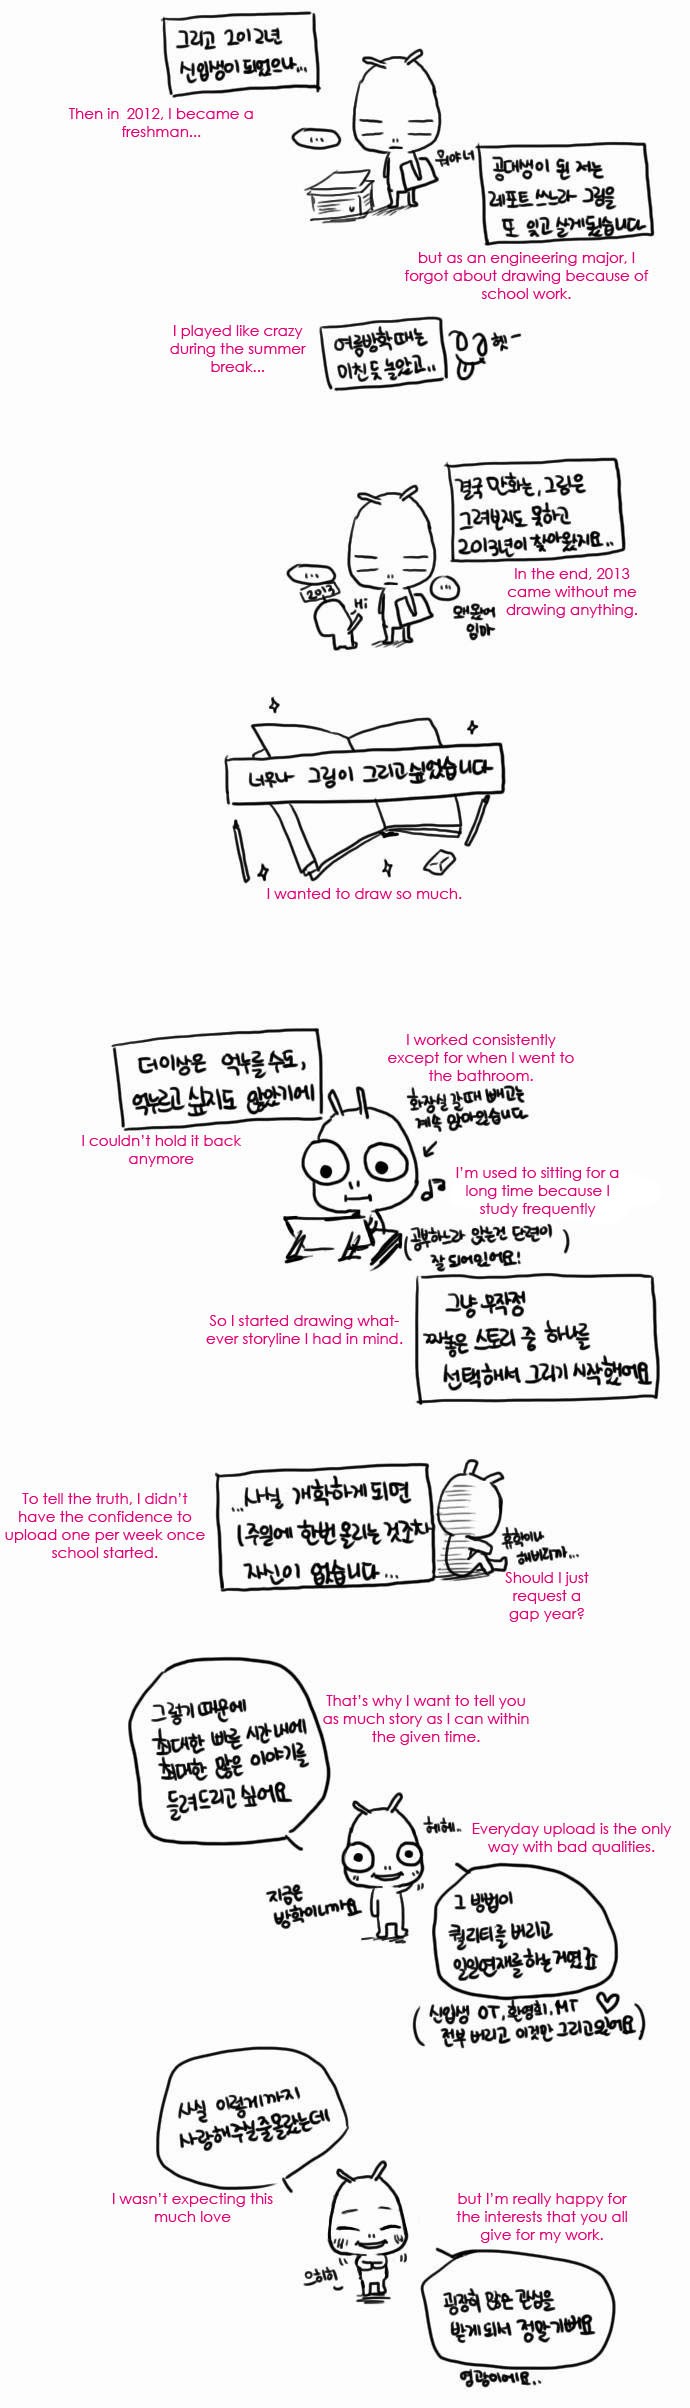 그리고 2012년
신입생이 되었으나...
Then in 2012, I became a
freshman...
...
뭐야 너
공대생이 된 저는
레포트 쓰느라 그림을
또 잊고 살게됬습니다
but as an engineering major, I
forgot about drawing because of
school work.
I played like crazy
during the summer
break...
여름방학 때는
미친듯 놀았고..
헷~
결국 만화는, 그림은
그려보지도 못하고
2013년이 찾아왔지요..
In the end, 2013
came without me
drawing anything.
...
2013
Hi
...
왜 왔어
임마
너무나 그림이 그리고싶었습니다
I wanted to draw so much.
더이상은 억누를 수도,
억누르고 싶지도 않았기에
I couldn't hold it back
anymore
I worked consistently
except for when I went to
the bathroom.
화장실 갈때 빼고는
계속 앉아있습니다
I'm used to sitting for a
long time because I
study frequently
(공부하느라 앉는건 단련이
잘 되어있어요!)
So I started drawing what-
ever storyline I had in mind.
그냥 무작정
짜놓은 스토리 중 하나를
선택해서 그리기 시작했어요
To tell the truth, I didn't
have the confidence to
upload one per week once
school started.
...사실 개학하게 되면
1주일에 한번 올리는 것조차
자신이 없습니다...
휴학이나
해버리까...
Should I just
request a
gap year?
그렇기 때문에
최대한 빠른 시간 내에
최대한 많은 이야기를
들려드리고 싶어요
That's why I want to tell you
as much story as I can within
the given time.
헤헤..
지금은
방학이니까요
Everyday upload is the only
way with bad qualities.
그 방법이
퀄리티를 버리고
일일연재를 하는거였죠
(신입생 OT, 환영회, MT ♡
전부 버리고 이것만 그리고있어요)
사실 이렇게까지
사랑해주실줄몰랐는데
I wasn't expecting this
much love
으히히
but I'm really happy for
the interests that you all
give for my work.
굉장히 많은 관심을
받게되서 정말기뻐요
영광이에요..